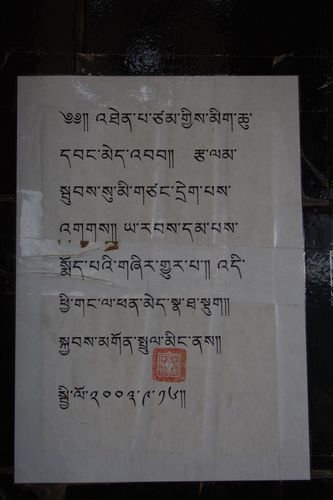 ༄༅།། འཐེན་པ་ཙམ་གྱིས་མིག་ཆུ་
དབང་མེད་འབབ།། རྩ་ལམ་
སྦུབས་སུ་མི་གཙང་དྲེག་པས་
འགགས།། ཡ་རབས་དམ་པས་
སྨོད་པའི་གཞིར་གྱུར་པ།། འདི་
ཕྱི་གང་ལ་ཕན་མེད་སྣ་ཐ་སྡུག།།
སྐྱབས་མགོན་སྤྲུལ་མིང་ནས།།
སྤྱི་ལོ་༢༠༠༣་༩་༡༦།།